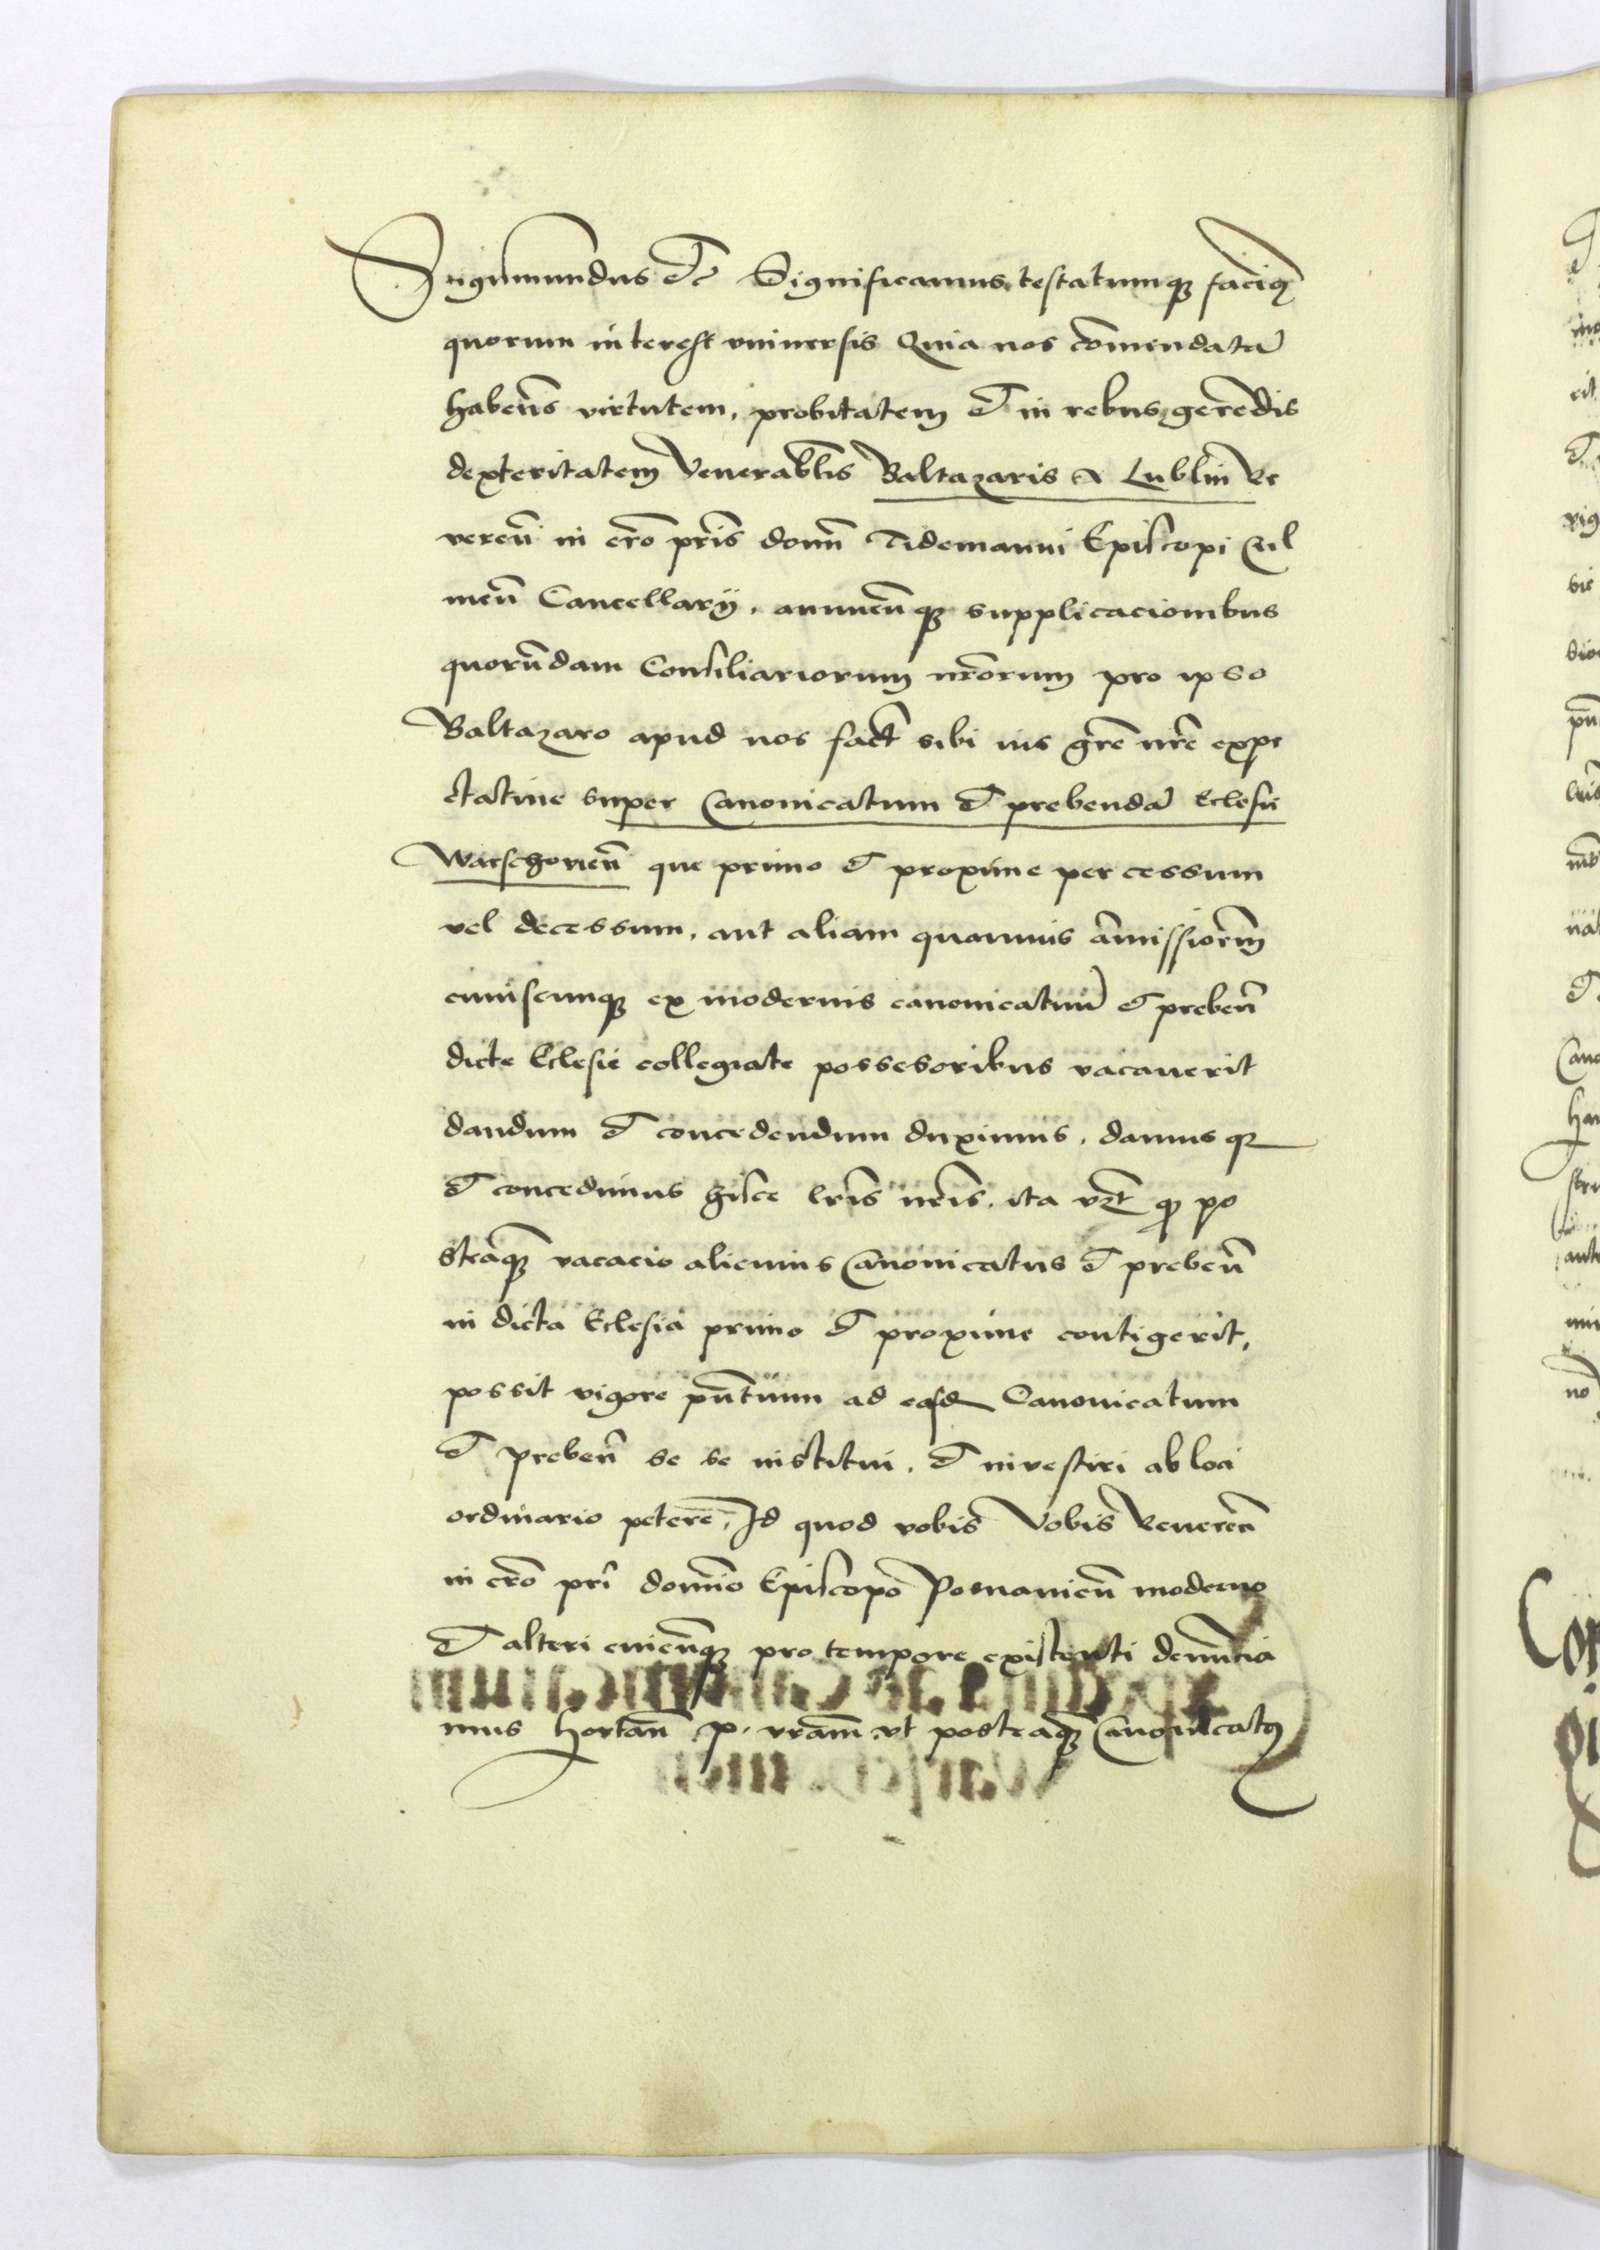 Sigismundus etc Significamus testatumque facimus
quorum interest universis Quia nos comendatā
habeñs virtutem, probitatem et in rebus gerēdis
dexteritatem Venerablis Baltazaris a Lublin Re
vereñ in cr̄o pr̄is domī Tidemanni Episcopi Cul
meñ Cancellarij, annueñque supplicacionibus
quorundam Consiliariorum nr̄orum pro ipso
Baltazaro apud nos fact̄ sibi ius gr̄e nr̄e expe
ctative super Canonicatum et prebendā Eclesii
Warschovieñ que primo et proxime per cessum
vel decessum, aut aliam quamvis āmissionem
cuiuscunque ex modernis canonicatuū et prebeñ
dicte Eclesie collegiate possesoribus vacaverit
dandum et concedendum duximus, damusque
et concedimus hisce lr̄is nr̄is, ita vz̄t quod po
steāque vacacio alicuius Canonicatus et prebeñ
in dicta Eclesia primo et proxime contigerit,
possit vigore pn̄tium ad eosd Canonicatum
et prebeñ se se institui, et investiri ab loci
ordinario peterē, Id quod vobis Vobis Reverēn
in cr̄o pr̄i domīo Episcopo Posnanieñ moderno
et alteri cuicūque pro tempore existenti denuncia
mus hortañ p. vr̄am vt posteāque Canonicatus